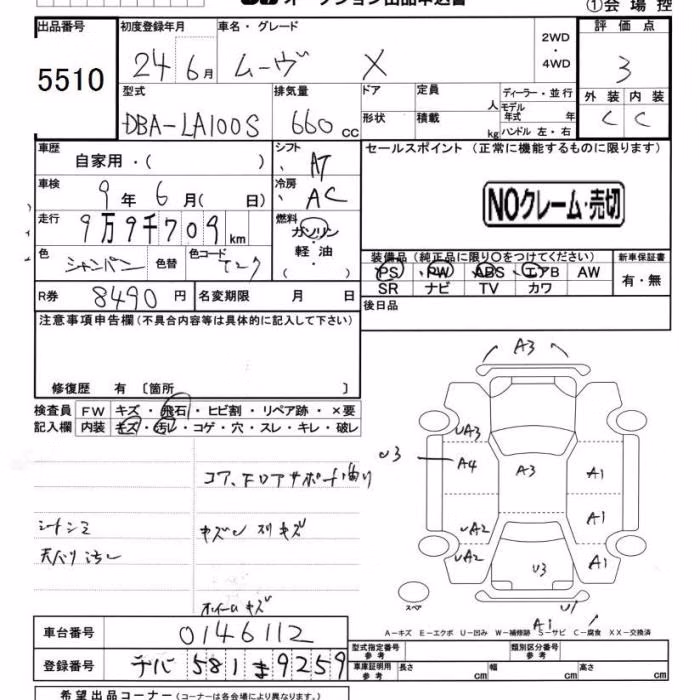 オークション出品申込書
①会場控
出品番号 5510
初度登録年月 24年6月
車名・グレード ムーヴ X
2WD・4WD
評価点 3
外装 C 内装 C
型式 DBA-LA100S
排気量 660cc
ドア 形状
定員 人
積載 kg
ディーラー・並行
モデル年式 年
ハンドル 左・右
車歴 自家用・( )
シフト AT
セールスポイント (正常に機能するものに限ります)
車検 9年6月( 日)
冷房 AC
NOクレーム・売切
走行 9万9千709km
燃料 ガソリン 軽油 ( )
色 シャンパン 色替 色コード T27
装備品 (純正品に限り〇をつけてください)
新車保証書 有・無
PS PW ABS エアB AW
SR ナビ TV カワ
R券 8490円 名変期限 月 日
後日品
注意事項申告欄 (不具合内容等は具体的に記入して下さい)
修復歴 有 〔箇所 〕
検査員記入欄
FW キズ・飛石・ヒビ割・リペア跡・×要
内装 キズ・汚レ・コゲ・穴・スレ・キレ・破レ
コア、下ロアサポート曲り
シートシミ
天バリ汚レ
キズ スリキズ
ホイールキズ
A3
UA3
U3
A4
A3
A1
A1
UA2
UA2
U3
A1
スペア
U1
A1
A-キズ E-エクボ U-凹み W-補修跡 S-サビ C-腐食 XX-交換済
車台番号 0146112
型式指定番号 参考
類別区分番号 参考
登録番号 チバ 581 ま 9259
車庫証明用 参考 長さ cm 幅 cm 高さ cm
希望出品コーナー (コーナーは各会場により異なります。)